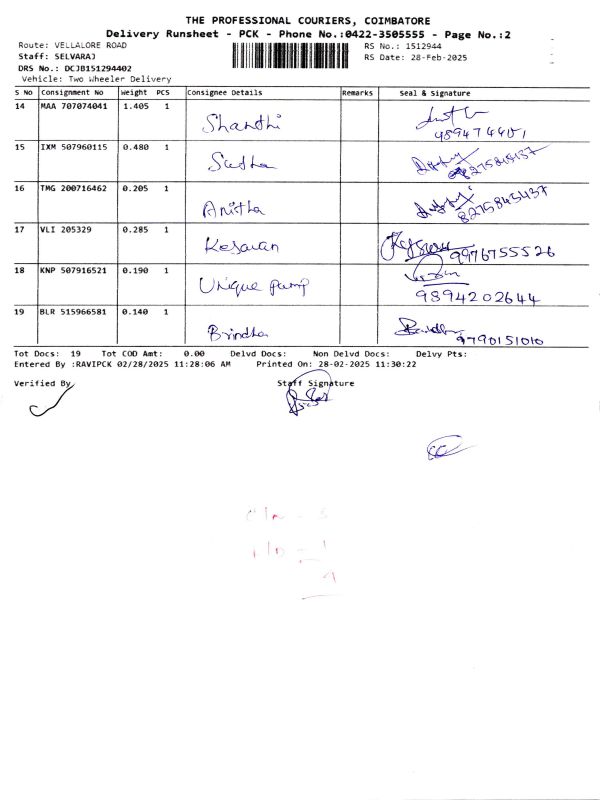 THE PROFESSIONAL COURIERS, COIMBATORE
Delivery Runsheet - PCK - Phone No.:0422-3505555 - Page No.:2
Route: VELLALORE ROAD RS No.: 1512944
Staff: SELVARAJ RS Date: 28-Feb-2025
DRS No.: DCJB151294402
Vehicle: Two Wheeler Delivery
S No Consignment No Weight PCS Consignee Details Remarks Seal & Signature
14 MAA 707074041 1.405 1 Shanthi
15 IXM 507960115 0.480 1 Sudha
16 TMG 200716462 0.205 1 Anitha 8275845437
17 VLI 205329 0.285 1 Kesavan 9976755526
18 KNP 507916521 0.190 1 Unique pump 9894202644
19 BLR 515966581 0.140 1 Brindha 9790151010
Tot Docs: 19 Tot COD Amt: 0.00 Delvd Docs: Non Delvd Docs: Delvy Pts:
Entered By :RAVIPCK 02/28/2025 11:28:06 AM Printed On: 28-02-2025 11:30:22
Verified By Staff Signature